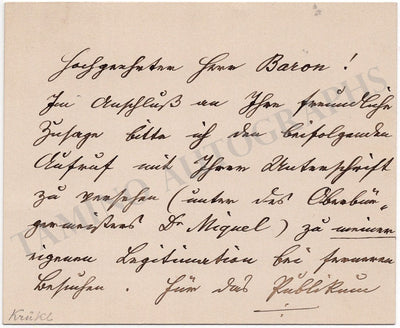 Hochgeehrter Herr Baron !
Im Anschluß an Ihre freundliche
Zusage bitte ich den beifolgenden
Aufruf mit Ihrer Unterschrift
zu versehen (unter des Oberbür-
germeisters Dr Miquel) zu meiner
eigenen Legitimation bei ferneren
Besuchen. Für das Publikum
Krükl
TAMINO AUTOGRAPHS